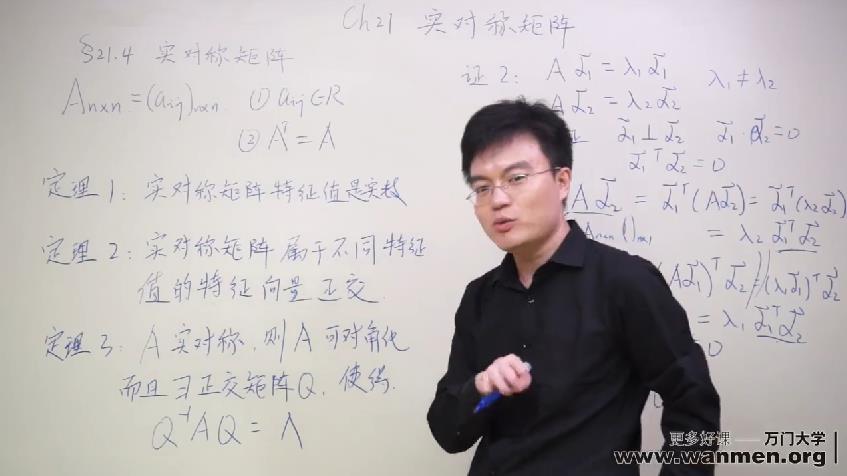 Ch21 实对称矩阵
§21.4 实对称矩阵
Aₙₓₙ = (aᵢⱼ)ₙₓₙ ① aᵢⱼ∈R
② Aᵀ = A
定理1: 实对称矩阵特征值是实数
定理2: 实对称矩阵属于不同特征
值的特征向量正交.
定理3: A实对称, 则A可对角化
而且∃正交矩阵Q, 使得.
Q⁻¹AQ = Λ
证2: Aα⃗₁ = λ₁α⃗₁ λ₁ ≠ λ₂
Aα⃗₂ = λ₂α⃗₂
α⃗₁⊥α⃗₂ α⃗₁·α⃗₂=0
α⃗₁ᵀα⃗₂=0
Aα⃗₂ = α⃗₁ᵀ(Aα⃗₂) = α⃗₁ᵀ(λ₂α⃗₂)
= λ₂α⃗₁ᵀα⃗₂
(Aα⃗₁)ᵀα⃗₂ = (λ₁α⃗₁)ᵀα⃗₂
= λ₁α⃗₁ᵀα⃗₂
更多好课 —— 万门大学
www.wanmen.org